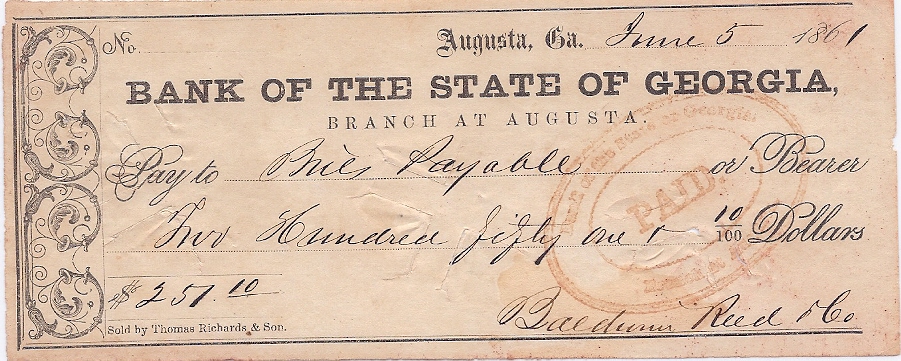 No. Augusta, Ga. June 5 1861
BANK OF THE STATE OF GEORGIA,
BRANCH AT AUGUSTA.
Pay to Bills Payable or Bearer
Two Hundred fifty one & 10/100 Dollars
$251.10
Baldwin Reed & Co
Sold by Thomas Richards & Son.
Bank of the State of Georgia
PAID